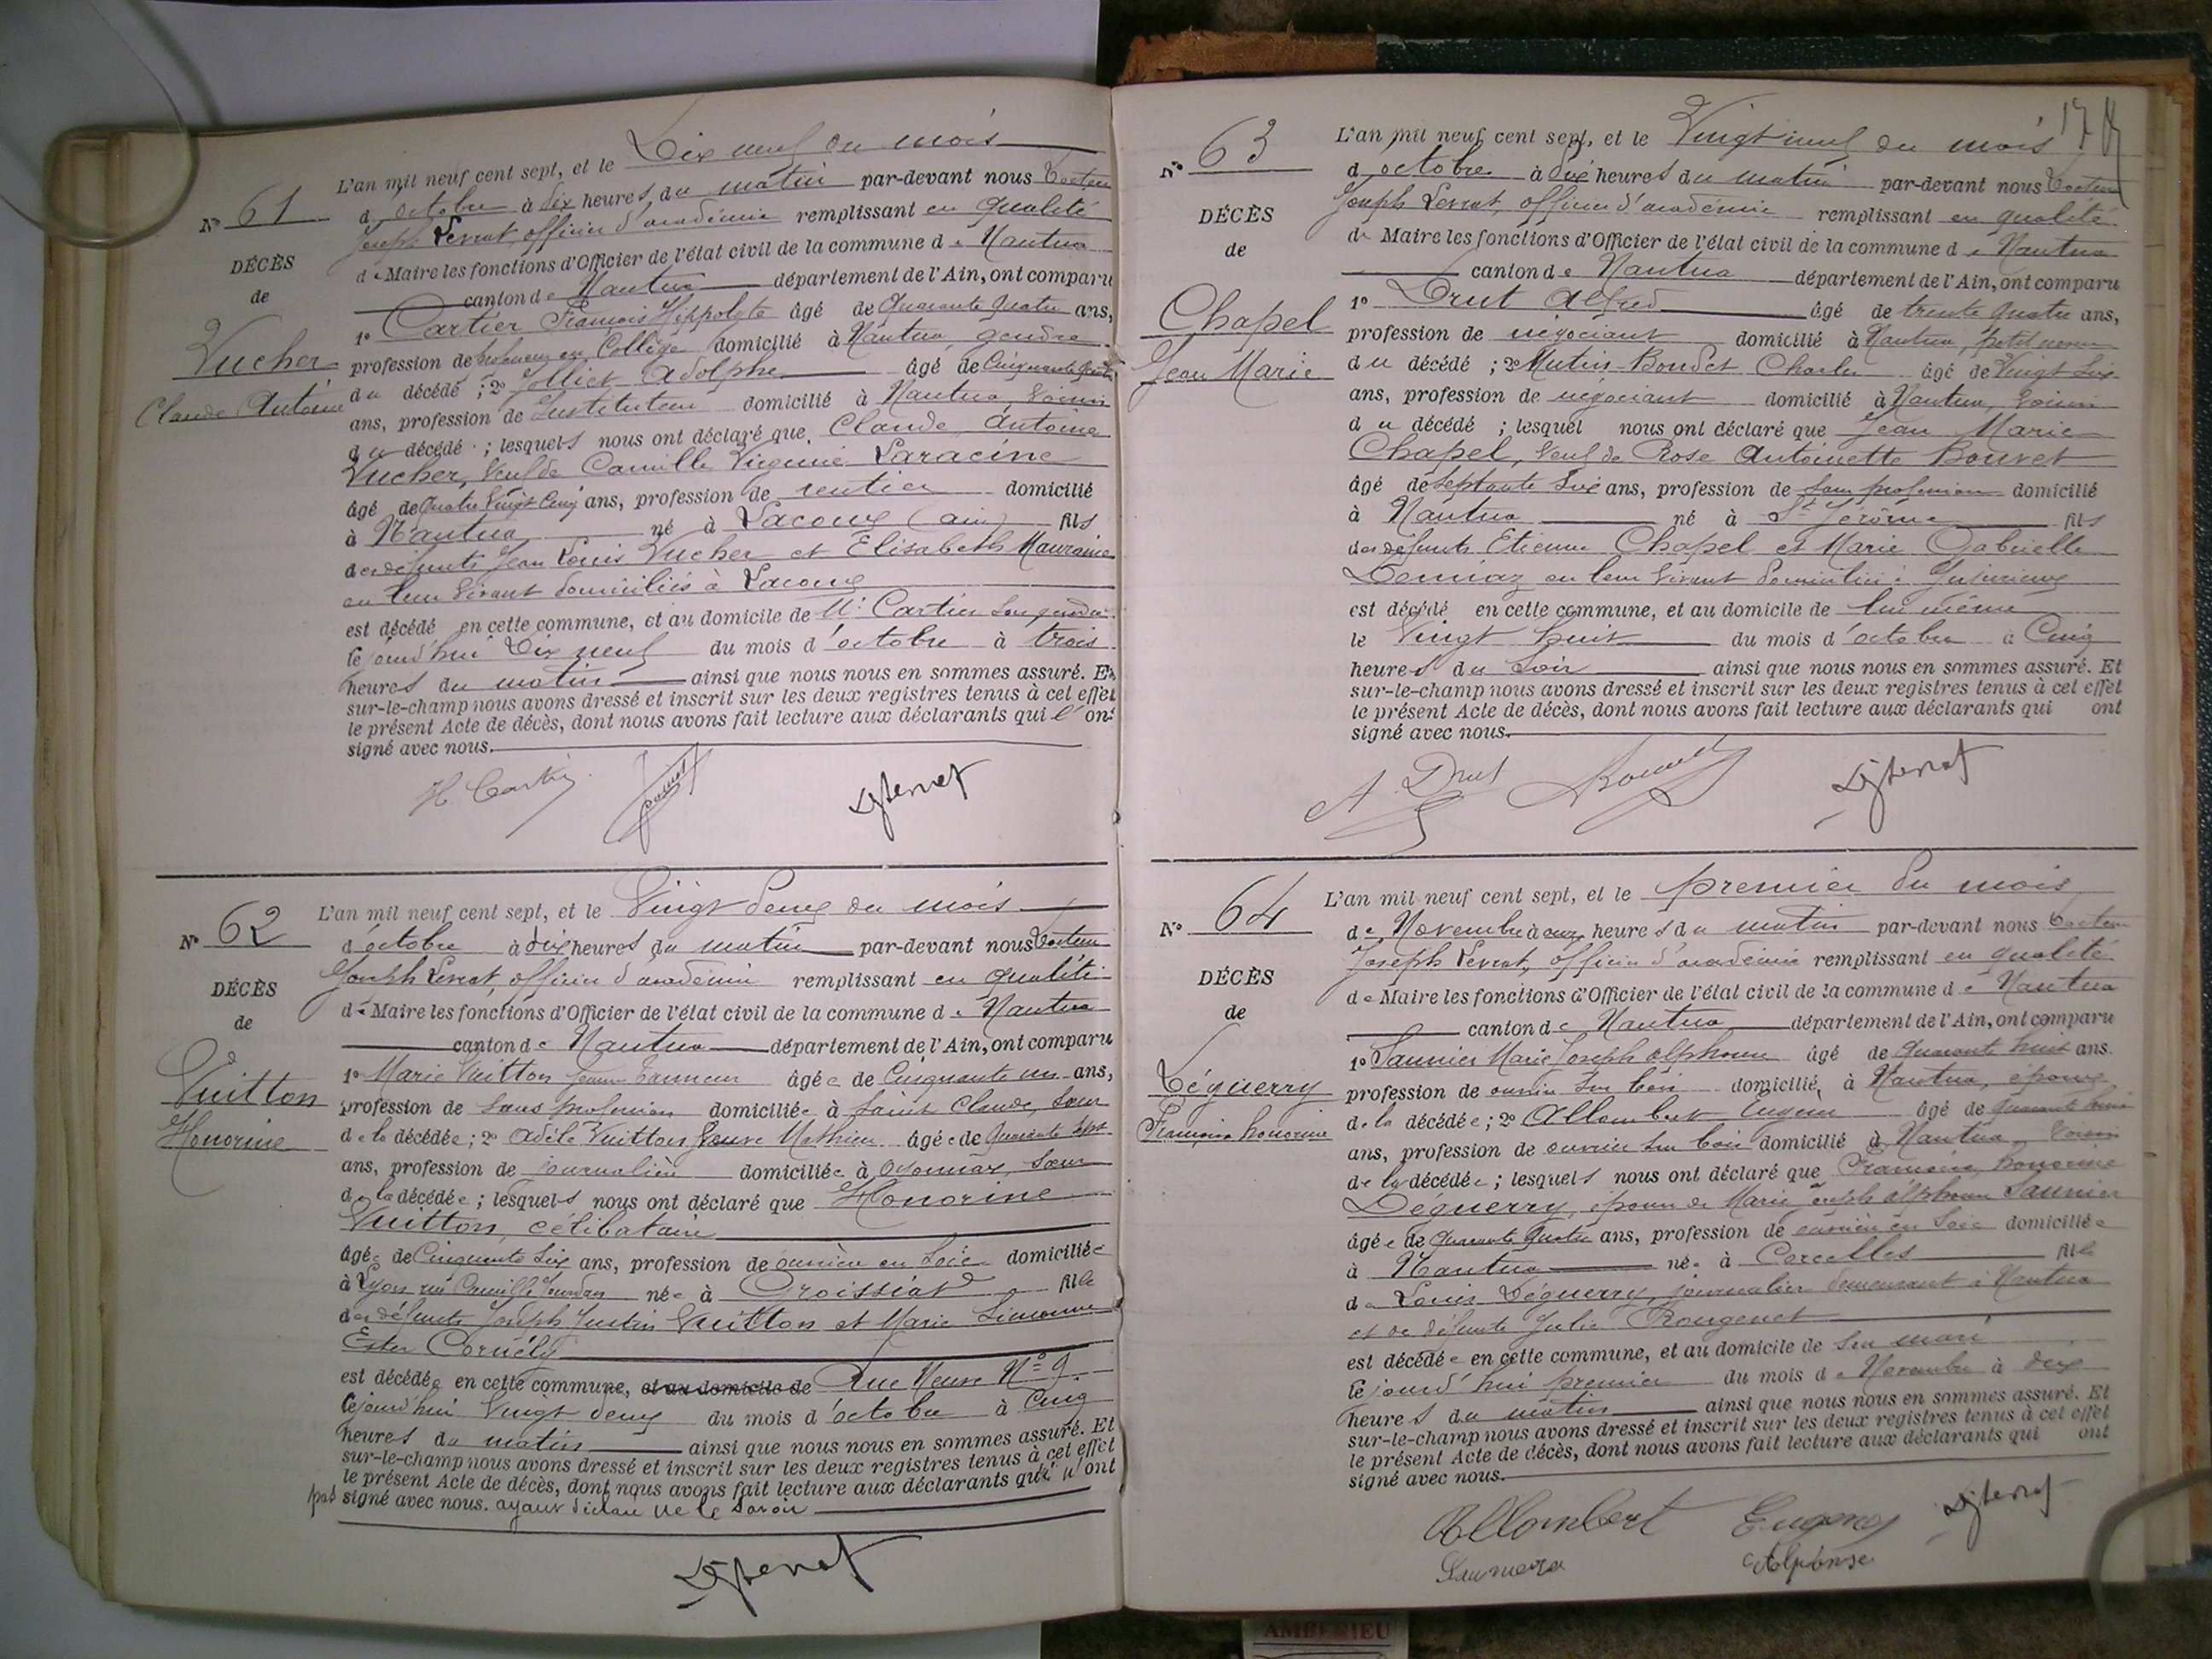 L'an mil neuf cent sept, et le Dix neuf du mois
Nº 61
d'octobre à dix heures du matin par-devant nous Docteur
Joseph Levrat, officier d'académie remplissant en qualité
DÉCÈS
de Maire les fonctions d'Officier de l'état civil de la commune de Nantua
de
canton de Nantua département de l'Ain, ont comparu
1º Cartier François Hippolyte âgé de Quarante quatre ans,
Vucher
profession de professeur au Collège domicilié à Nantua, gendre
Claude Antoine
du décédé ; 2º Jolliet Adolphe âgé de Cinquante
ans, profession de Instituteur domicilié à Nantua, voisin
du décédé ; lesquels nous ont déclaré que Claude Antoine
Vucher, veuf de Camille Virginie Laracine
âgé de Quatre Vingt Cinq ans, profession de rentier domicilié
à Nantua né à Lacoux (ain) fils
des défunts Jean Louis Vucher et Elisabeth
en leur vivant domiciliés à Lacoux
est décédé en cette commune, et au domicile de Mr Cartier son gendre
le jourd'hui Dix neuf du mois d'octobre à trois
heures du matin ainsi que nous nous en sommes assuré. Et
sur-le-champ nous avons dressé et inscrit sur les deux registres tenus à cet effet
le présent Acte de décès, dont nous avons fait lecture aux déclarants qui l'ont
signé avec nous.
H. Cartier
L'an mil neuf cent sept, et le Vingt deux du mois
Nº 62
d'octobre à dix heures du matin par-devant nous Docteur
Joseph Levrat, officier d'académie remplissant en qualité
DÉCÈS
de Maire les fonctions d'Officier de l'état civil de la commune de Nantua
de
canton de Nantua département de l'Ain, ont comparu
Vuitton
1º Marie Vuitton femme âgée de Cinquante un ans,
Honorine
profession de sans profession domiciliée à Saint Claude, sœur
de la décédée ; 2º Adèle Vuitton veuve Mathieu âgée de Quarante sept
ans, profession de journalière domiciliée à Oyonnax, sœur
de la décédée ; lesquels nous ont déclaré que Honorine
Vuitton, célibataire
âgée de Cinquante Six ans, profession de ouvrière en soie domiciliée
à Lyon rue Camille Jourdan née à Croissiat fille
des défunts Joseph Justin Vuitton et Marie Simonne
Ester Cornély
est décédée en cette commune, et au domicile de Rue Neuve Nº 9.
le jourd'hui Vingt deux du mois d'octobre à Cinq
heures du matin ainsi que nous nous en sommes assuré. Et
sur-le-champ nous avons dressé et inscrit sur les deux registres tenus à cet effet
le présent Acte de décès, dont nous avons fait lecture aux déclarants qui n'ont
pas signé avec nous. ayant déclaré ne le savoir
L'an mil neuf cent sept, et le Vingt neuf du mois
Nº 63
d'octobre à dix heures du matin par-devant nous Docteur
Joseph Levrat, officier d'académie remplissant en qualité
DÉCÈS
de Maire les fonctions d'Officier de l'état civil de la commune de Nantua
de
canton de Nantua département de l'Ain, ont comparu
Chapel
1º Drut Alfred âgé de trente quatre ans,
Jean Marie
profession de négociant domicilié à Nantua, petit neveu
du décédé ; 2º Mutin-Boudet Charles âgé de Vingt Six
ans, profession de négociant domicilié à Nantua, voisin
du décédé ; lesquel nous ont déclaré que Jean Marie
Chapel, veuf de Rose Antoinette Bouvet
âgé de Septante Six ans, profession de sans profession domicilié
à Nantua né à St Jérôme fils
des défunts Etienne Chapel et Marie Gabrielle
Demiaz en leur vivant domiciliés à Jujurieux
est décédé en cette commune, et au domicile de lui même
le Vingt huit du mois d'octobre à Cinq
heures du soir ainsi que nous nous en sommes assuré. Et
sur-le-champ nous avons dressé et inscrit sur les deux registres tenus à cet effet
le présent Acte de décès, dont nous avons fait lecture aux déclarants qui ont
signé avec nous.
A. Drut
L'an mil neuf cent sept, et le premier du mois
Nº 64
de Novembre à onze heures du matin par-devant nous Docteur
Joseph Levrat, officier d'académie remplissant en qualité
DÉCÈS
de Maire les fonctions d'Officier de l'état civil de la commune de Nantua
de
canton de Nantua département de l'Ain, ont comparu
1º Saunier Marie Joseph Alphonse âgé de Quarante huit ans.
Déguerry
profession de ouvrier sur bois domicilié à Nantua, époux
Françoise honorine
de la décédée ; 2º Allombert Eugène âgé de quarante
ans, profession de ouvrier sur bois domicilié à Nantua voisin
de la décédée ; lesquels nous ont déclaré que Françoise honorine
Déguerry, épouse de Marie Joseph Alphonse Saunier
âgée de Quarante Quatre ans, profession de ouvrière en soie domiciliée
à Nantua née à Corcelles fille
de Louis Déguerry, journalier demeurant à Nantua
et de défunte Julie Rougenet
est décédée en cette commune, et au domicile de son mari
le jourd'hui premier du mois de Novembre à dix
heures du matin ainsi que nous nous en sommes assuré. Et
sur-le-champ nous avons dressé et inscrit sur les deux registres tenus à cet effet
le présent Acte de décès, dont nous avons fait lecture aux déclarants qui ont
signé avec nous.
Allombert Eugène
Alphonse
AMBERIEU